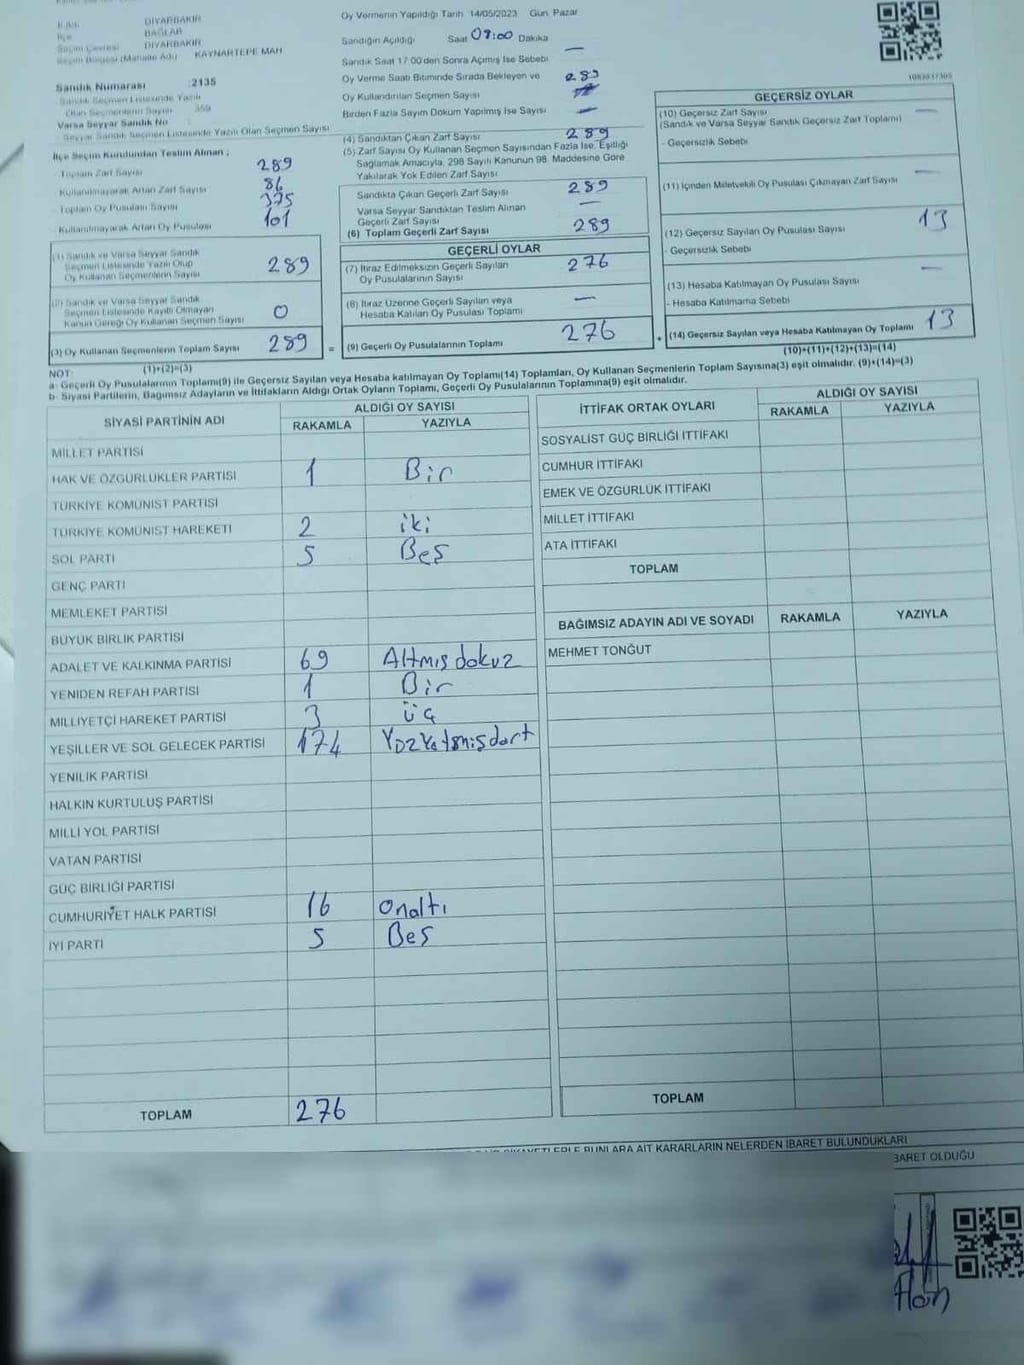 İli DİYARBAKIR
İlçe BAĞLAR
Seçim Çevresi DİYARBAKIR
Seçim Bölgesi (Mahalle Adı) KAYNARTEPE MAH
Sandık Numarası :2135
Sandık Seçmen Listesinde Yazılı
Olan Seçmenlerin Sayısı 359
Varsa Seyyar Sandık No :
Seyyar Sandık Seçmen Listesinde Yazılı Olan Seçmen Sayısı
İlçe Seçim Kurulundan Teslim Alınan ;
- Toplam Zarf Sayısı 289
- Kullanılmayarak Artan Zarf Sayısı 86
- Toplam Oy Pusulası Sayısı 375
- Kullanılmayarak Artan Oy Pusulası 101
(1) Sandık ve Varsa Seyyar Sandık
Seçmen Listesinde Yazılı Olup
Oy Kullanan Seçmenlerin Sayısı 289
(2) Sandık ve Varsa Seyyar Sandık
Seçmen Listesinde Kayıtlı Olmayan
Kanun Gereği Oy Kullanan Seçmen Sayısı 0
(3) Oy Kullanan Seçmenlerin Toplam Sayısı 289
(1)+(2)=(3)
Oy Vermenin Yapıldığı Tarih 14/05/2023 Gün Pazar
Sandığın Açıldığı Saat 07:00 Dakika
Sandık Saat 17:00'den Sonra Açılmış İse Sebebi —
Oy Verme Saati Bitiminde Sırada Bekleyen ve 289
Oy Kullandırılan Seçmen Sayısı
Birden Fazla Sayım Döküm Yapılmış İse Sayısı —
(4) Sandıktan Çıkan Zarf Sayısı 289
(5) Zarf Sayısı Oy Kullanan Seçmen Sayısından Fazla İse, Eşitliği
Sağlamak Amacıyla, 298 Sayılı Kanunun 98. Maddesine Göre
Yakılarak Yok Edilen Zarf Sayısı
Sandıkta Çıkan Geçerli Zarf Sayısı 289
Varsa Seyyar Sandıktan Teslim Alınan
Geçerli Zarf Sayısı —
(6) Toplam Geçerli Zarf Sayısı 289
GEÇERLİ OYLAR
(7) İtiraz Edilmeksizin Geçerli Sayılan
Oy Pusulalarının Sayısı 276
(8) İtiraz Üzerine Geçerli Sayılan veya
Hesaba Katılan Oy Pusulası Toplamı —
= (9) Geçerli Oy Pusulalarının Toplamı 276
1083037305
GEÇERSİZ OYLAR
(10) Geçersiz Zarf Sayısı —
(Sandık ve Varsa Seyyar Sandık Geçersiz Zarf Toplamı)
- Geçersizlik Sebebi
(11) İçinden Milletvekili Oy Pusulası Çıkmayan Zarf Sayısı —
(12) Geçersiz Sayılan Oy Pusulası Sayısı 13
- Geçersizlik Sebebi
(13) Hesaba Katılmayan Oy Pusulası Sayısı —
- Hesaba Katılmama Sebebi
+ (14) Geçersiz Sayılan veya Hesaba Katılmayan Oy Toplamı 13
(10)+(11)+(12)+(13)=(14)
NOT:
a- Geçerli Oy Pusulalarının Toplamı(9) ile Geçersiz Sayılan veya Hesaba katılmayan Oy Toplamı(14) Toplamları, Oy Kullanan Seçmenlerin Toplam Sayısına(3) eşit olmalıdır. (9)+(14)=(3)
b- Siyasi Partilerin, Bağımsız Adayların ve İttifakların Aldığı Ortak Oyların Toplamı, Geçerli Oy Pusulalarının Toplamına(9) eşit olmalıdır.
SİYASİ PARTİNİN ADI ALDIĞI OY SAYISI
RAKAMLA YAZIYLA
MİLLET PARTİSİ
HAK VE ÖZGÜRLÜKLER PARTİSİ 1 Bir
TÜRKİYE KOMÜNİST PARTİSİ
TÜRKİYE KOMÜNİST HAREKETİ 2 iki
SOL PARTİ 5 Beş
GENÇ PARTİ
MEMLEKET PARTİSİ
BÜYÜK BİRLİK PARTİSİ
ADALET VE KALKINMA PARTİSİ 69 Altmış dokuz
YENİDEN REFAH PARTİSİ 1 Bir
MİLLİYETÇİ HAREKET PARTİSİ 3 üç
YEŞİLLER VE SOL GELECEK PARTİSİ 174
YENİLİK PARTİSİ
HALKIN KURTULUŞ PARTİSİ
MİLLİ YOL PARTİSİ
VATAN PARTİSİ
GÜÇ BİRLİĞİ PARTİSİ
CUMHURİYET HALK PARTİSİ 16 Onaltı
İYİ PARTİ 5 Beş
TOPLAM 276
İTTİFAK ORTAK OYLARI ALDIĞI OY SAYISI
RAKAMLA YAZIYLA
SOSYALİST GÜÇ BİRLİĞİ İTTİFAKI
CUMHUR İTTİFAKI
EMEK VE ÖZGÜRLÜK İTTİFAKI
MİLLET İTTİFAKI
ATA İTTİFAKI
TOPLAM
BAĞIMSIZ ADAYIN ADI VE SOYADI RAKAMLA YAZIYLA
MEHMET TONĞUT
TOPLAM
BUNLARA AİT KARARLARIN NELERDEN İBARET BULUNDUKLARI
BARET OLDUĞU